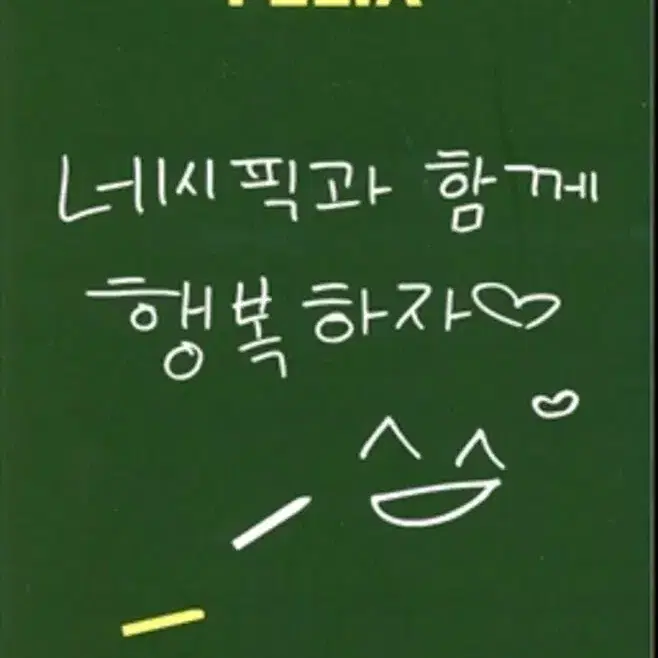 FELIX
네시픽과 함께
행복하자♡